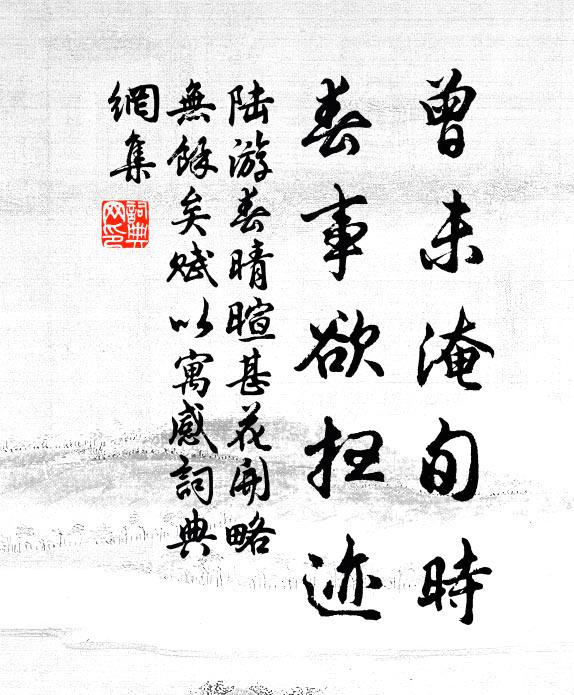 曾未淹旬時
春事欲扫迹
陆游春晴暄甚花開略
無餘矣賦以寓感詞典
網集
詞典网印